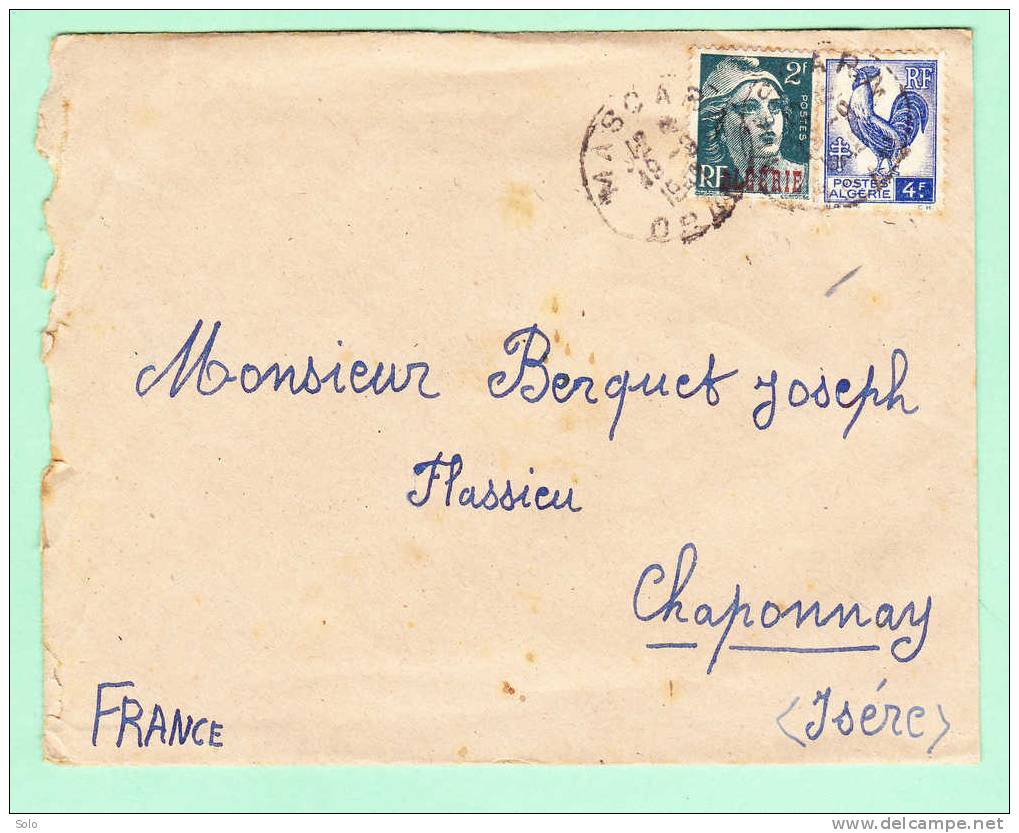 MASCARA
ORAN
2F
POSTES
RF
ALGERIE
RF
POSTES
ALGERIE
4F
Monsieur Berquet Joseph
Flassieu
Chaponnay
(Isére)
FRANCE
Solo
www.delcampe.net